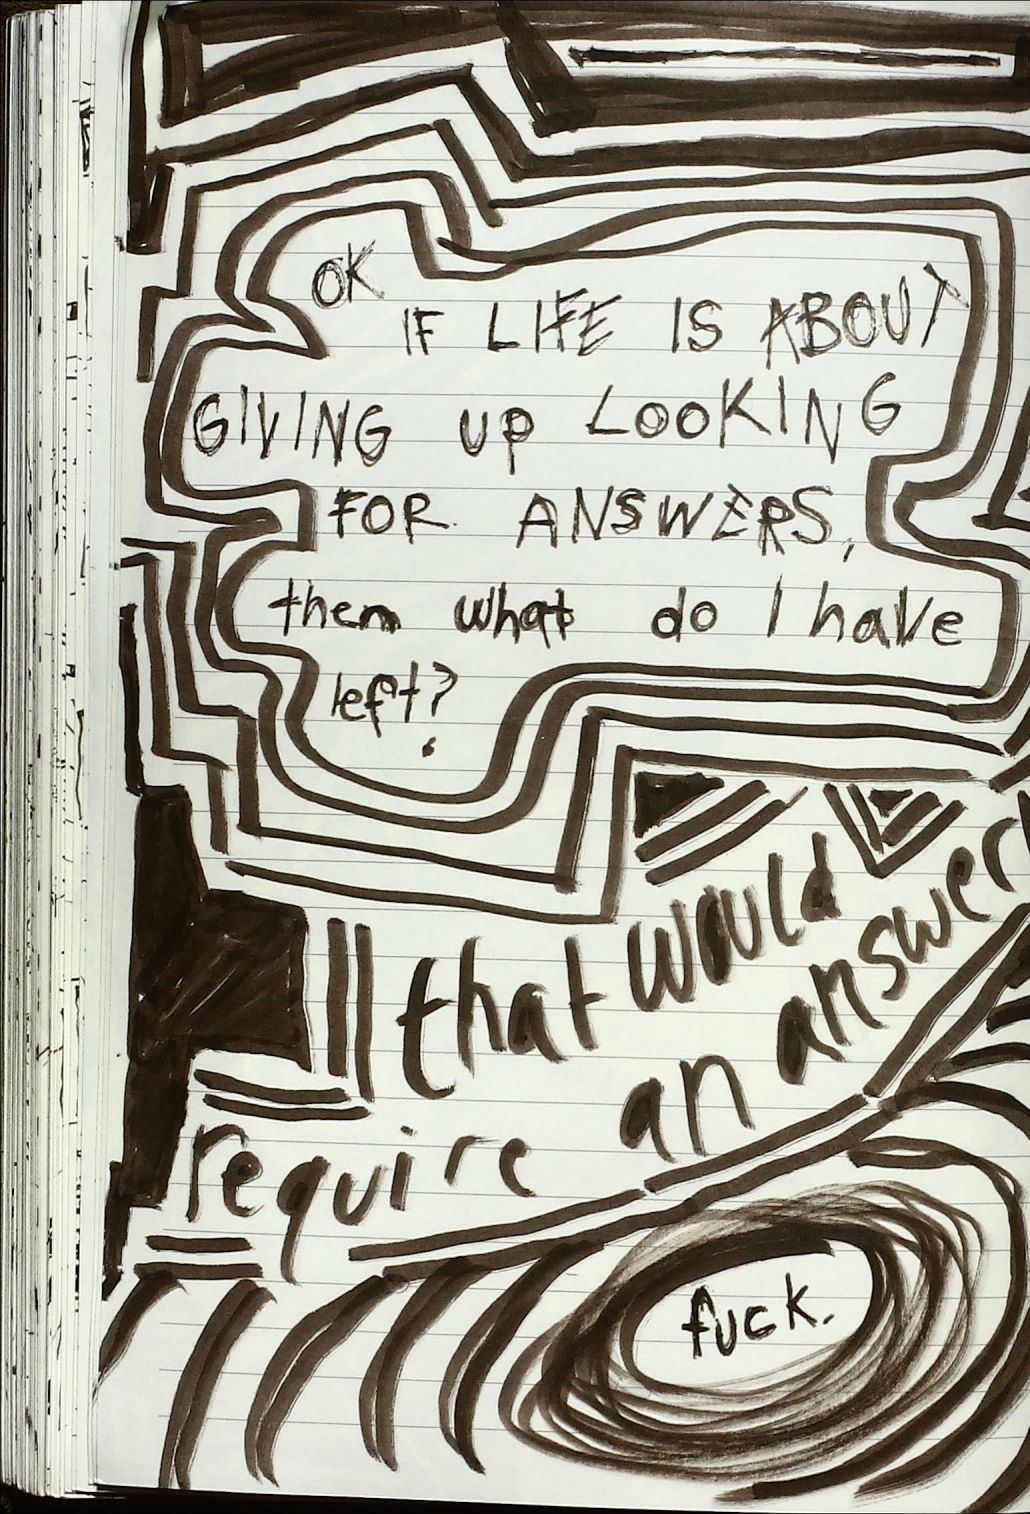 OK
IF LIFE IS ABOUT
GIVING UP LOOKING
FOR ANSWERS,
then what do I have
left?
that would
require an answer
fuck.